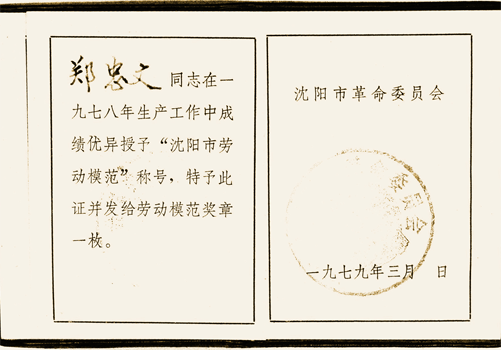 郑忠文 同志在一
九七八年生产工作中成
绩优异授予“沈阳市劳
动模范”称号，特予此
证并发给劳动模范奖章
一枚。
沈阳市革命委员会
委员会
一九七九年三月 日